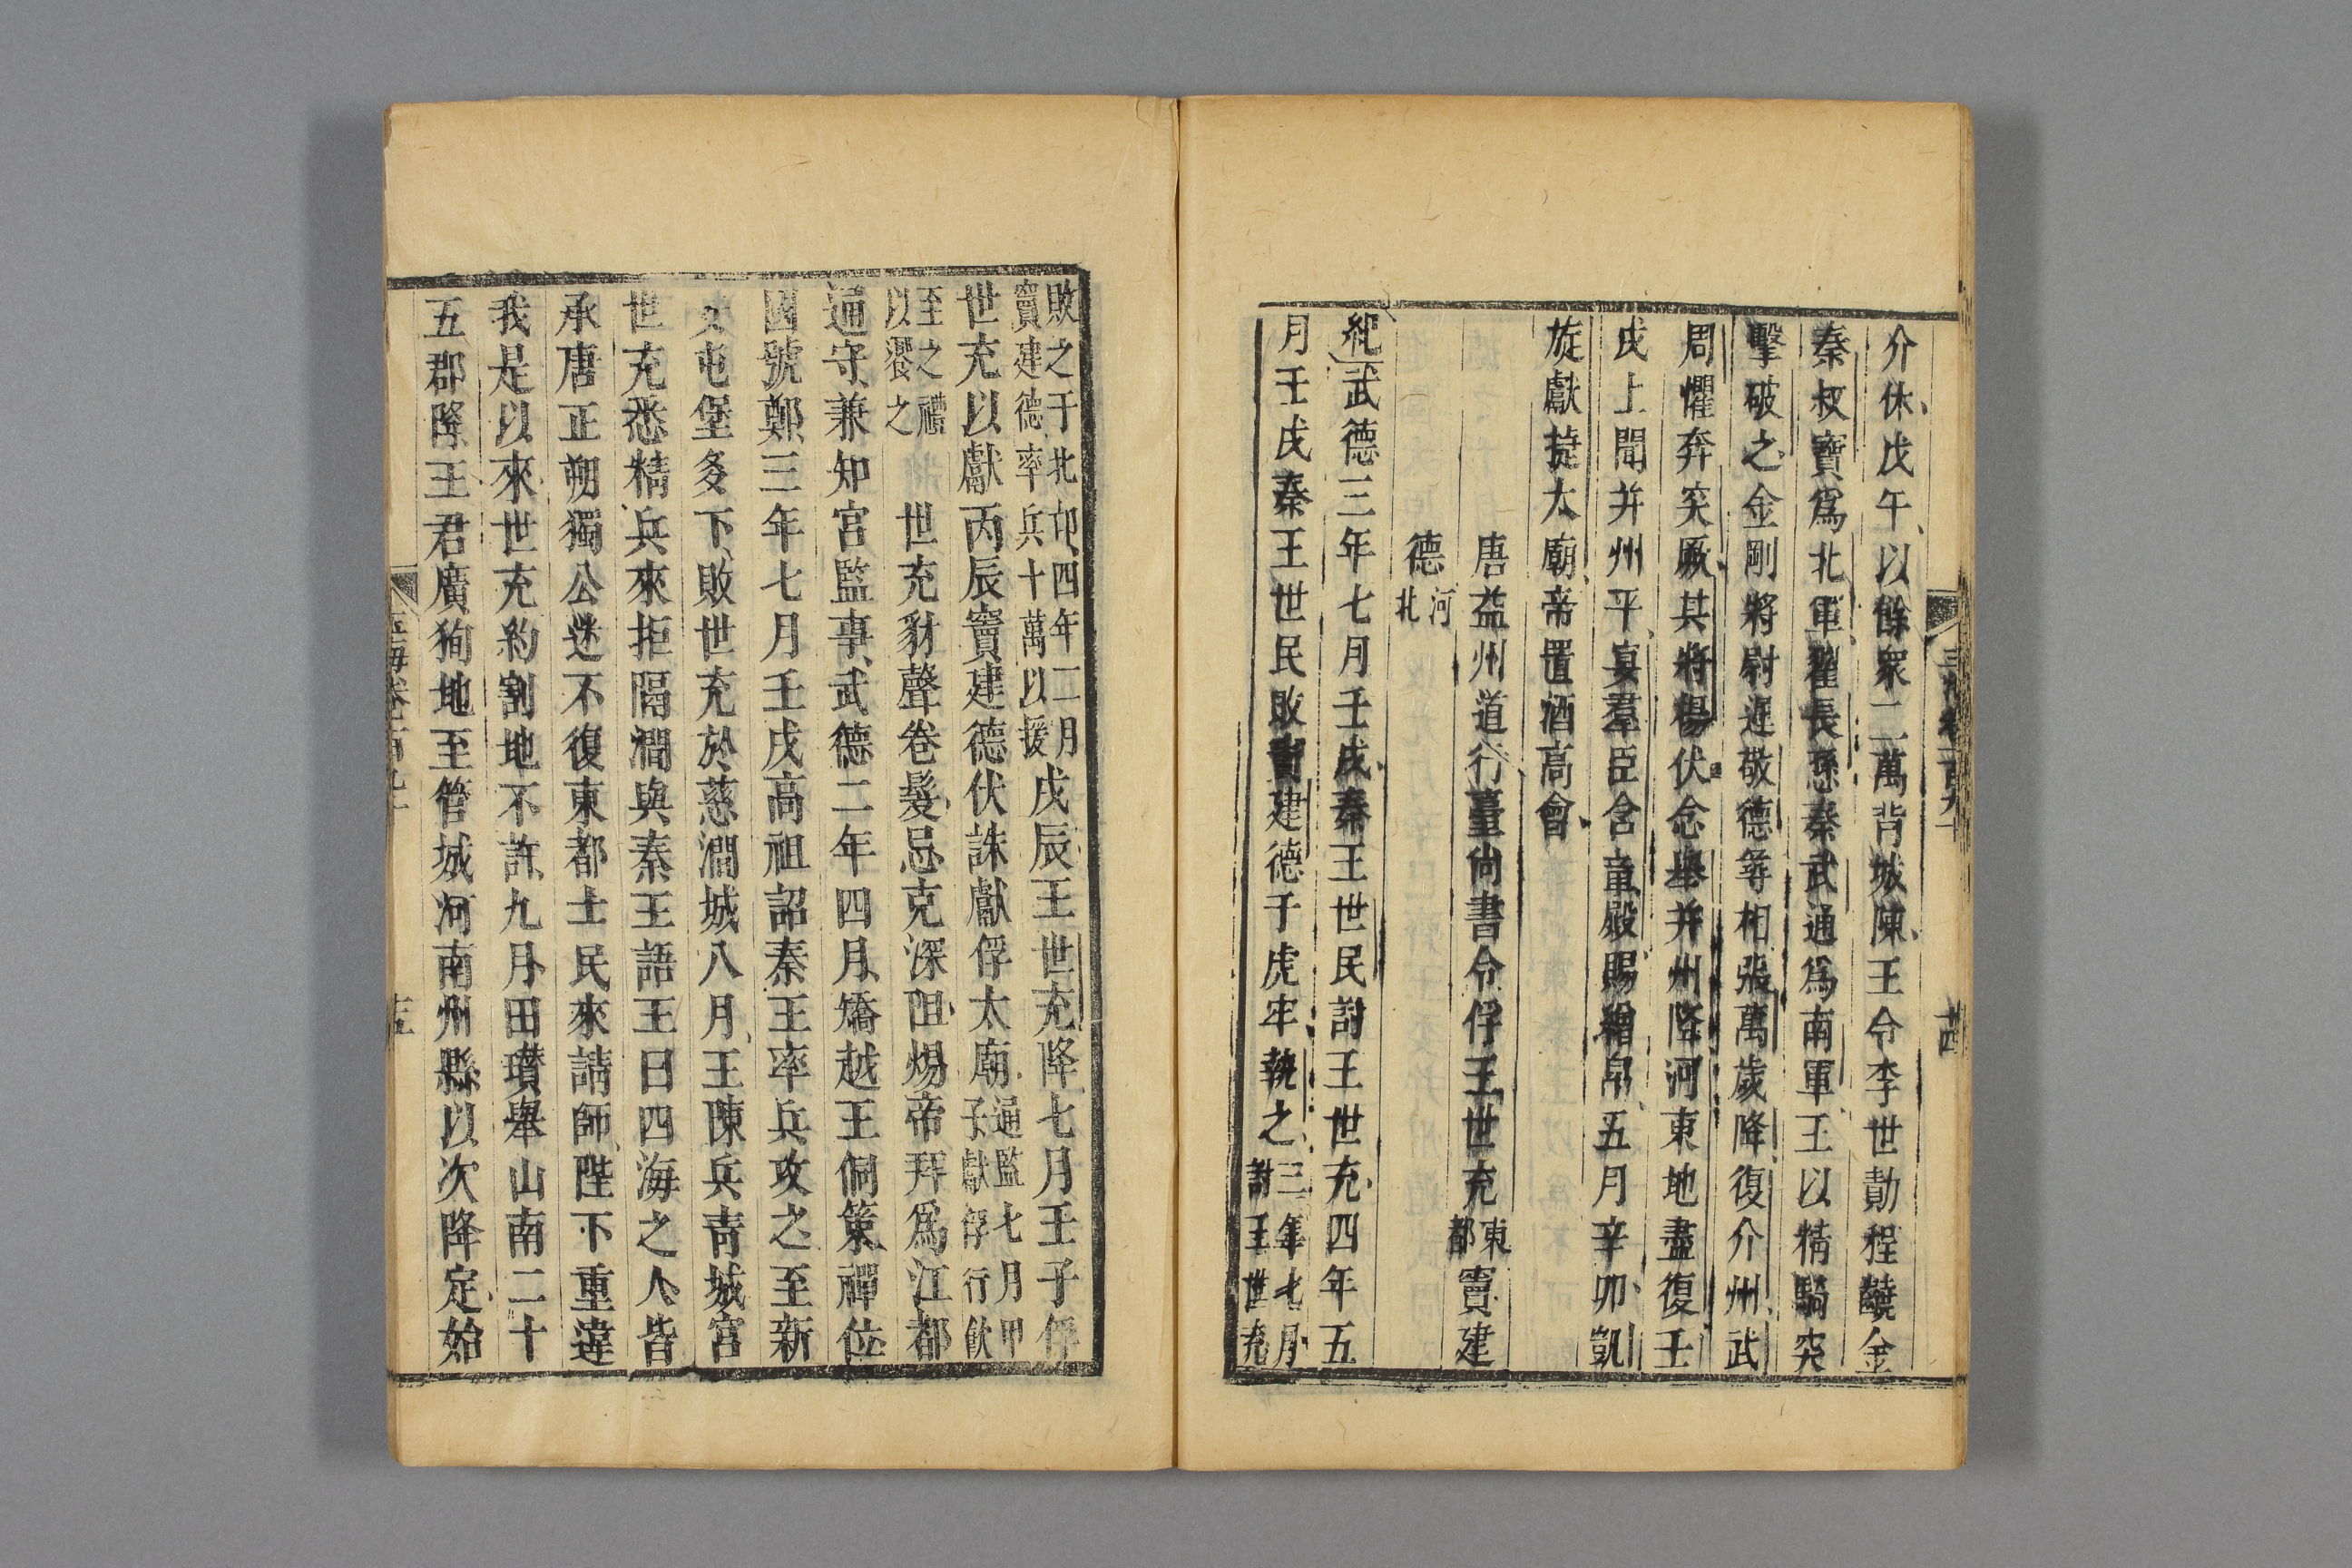 玉海卷一百九十
十四
介休戊午以餘衆二萬背城陳王令李世勣程饒金
秦叔寶爲北軍翟長孫秦武通爲南軍王以精騎突
擊破之金剛將尉遲敬德等相張萬歲降復介州武
周懼奔突厥其將楊伏念舉并州降河東地盡復壬
戌上聞并州平宴羣臣含章殿賜繒帛五月辛卯凱
旋獻捷太廟帝置酒高會
唐益州道行臺尚書令俘王世充東都竇建
德河北
紀武德三年七月壬戌秦王世民討王世充四年五
月壬戌秦王世民敗竇建德于虎牢執之三年七月討王世充
敗之于北邙四年二月竇建德率兵十萬以援戊辰王世充降七月壬子俘
世充以獻丙辰竇建德伏誅獻俘太廟通監七月甲子獻俘行飲
至之禮以饗之世充豺聲卷髮忌克深阻煬帝拜爲江都
通守兼知宮監事武德二年四月矯越王侗策禪位
國號鄭三年七月壬戌高祖詔秦王率兵攻之至新
安屯堡多下敗世充於慈澗城八月王陳兵青城宮
世充悉精兵來拒隔澗與秦王語王曰四海之人皆
承唐正朔獨公迷不復東都士民來請師陛下重違
我是以來世充約割地不許九月田瓚舉山南二十
五郡降王君廣狥地至管城河南州縣以次降定始
玉海卷百九十
十五